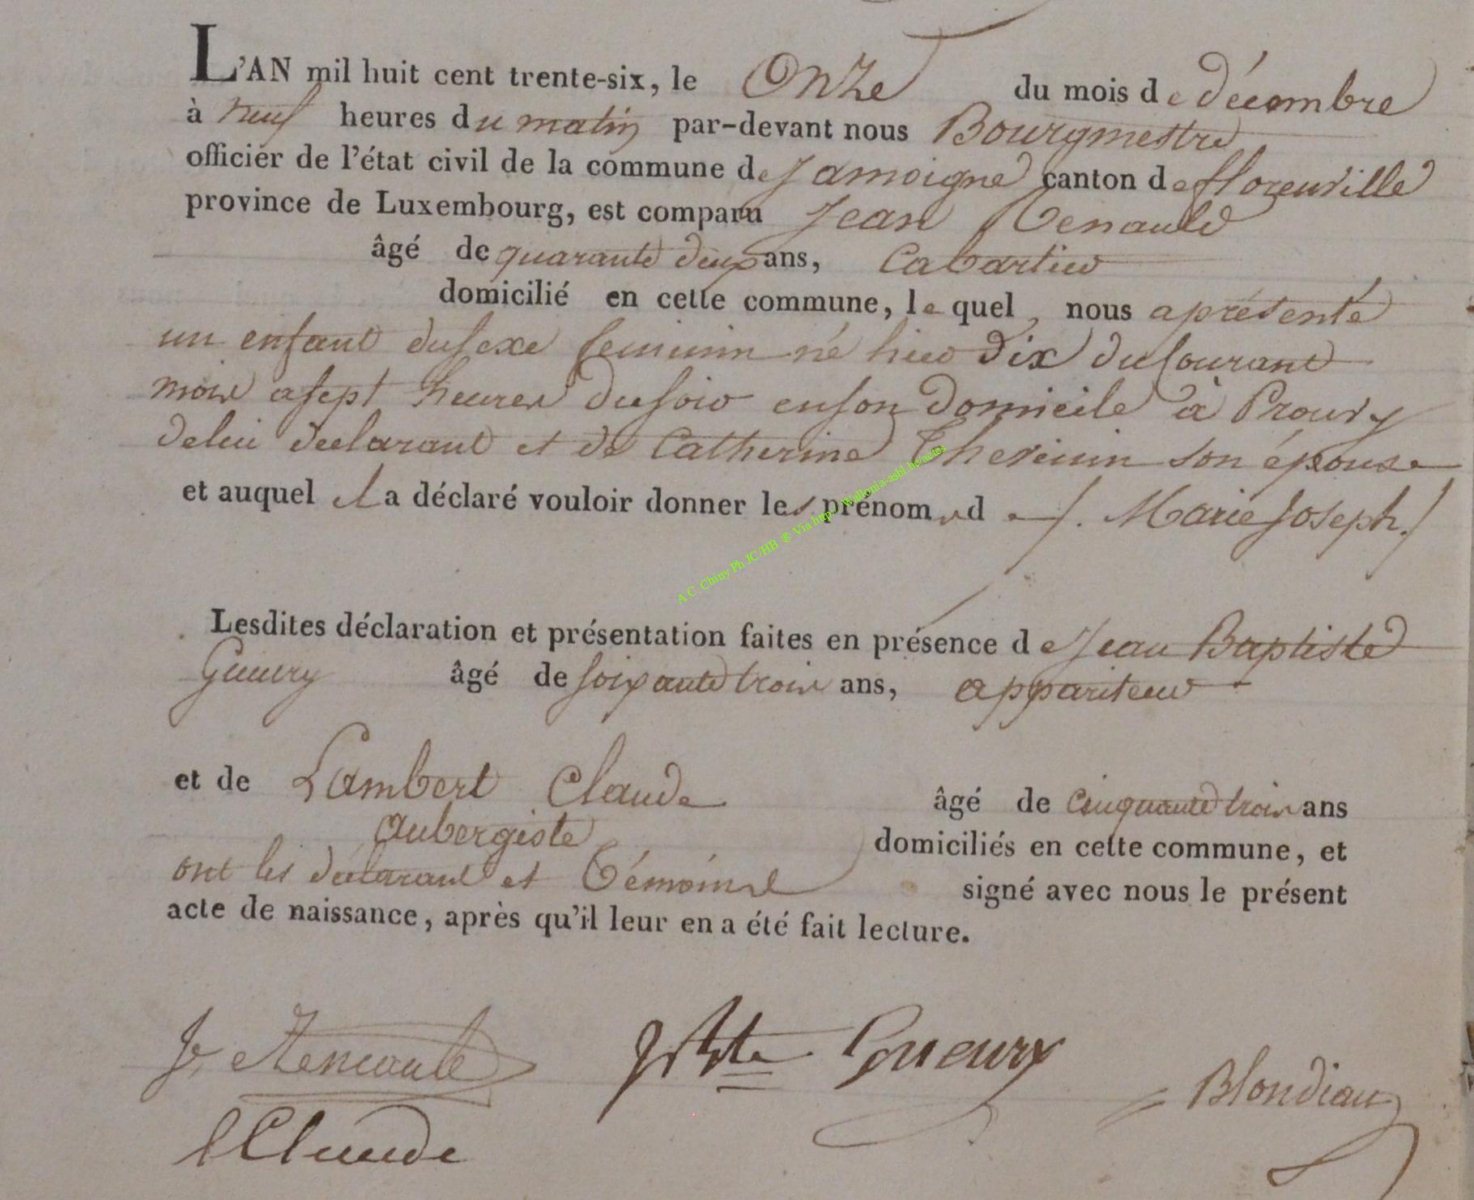 L'AN mil huit cent trente-six, le Onze du mois de décembre
à neuf heures du matin par-devant nous Bourgmestre
officier de l'état civil de la commune de Jamoigne canton de florenville
province de Luxembourg, est comparu Jean Renauld
âgé de quarante deux ans, Cabartier
domicilié en cette commune, lequel nous a présenté
un enfant du sexe feminin né hier dix du Courant
mois a sept heures du soir en son domicile à Prouvy
de lui declarant et de Catherine son épouse
et auquel il a déclaré vouloir donner les prénoms de /. Marie Joseph ./
A.C. Chiny Ph.JC.HB ® Via
Lesdites déclaration et présentation faites en présence de Jean Baptiste
Gueury âgé de soixante trois ans, appariteur
et de Lambert Claude âgé de cinquante trois ans
aubergiste domiciliés en cette commune, et
ont les declarant et témoins signé avec nous le présent
acte de naissance, après qu'il leur en a été fait lecture.
J. Renauld JBte Gueury Blondiau
L Claude